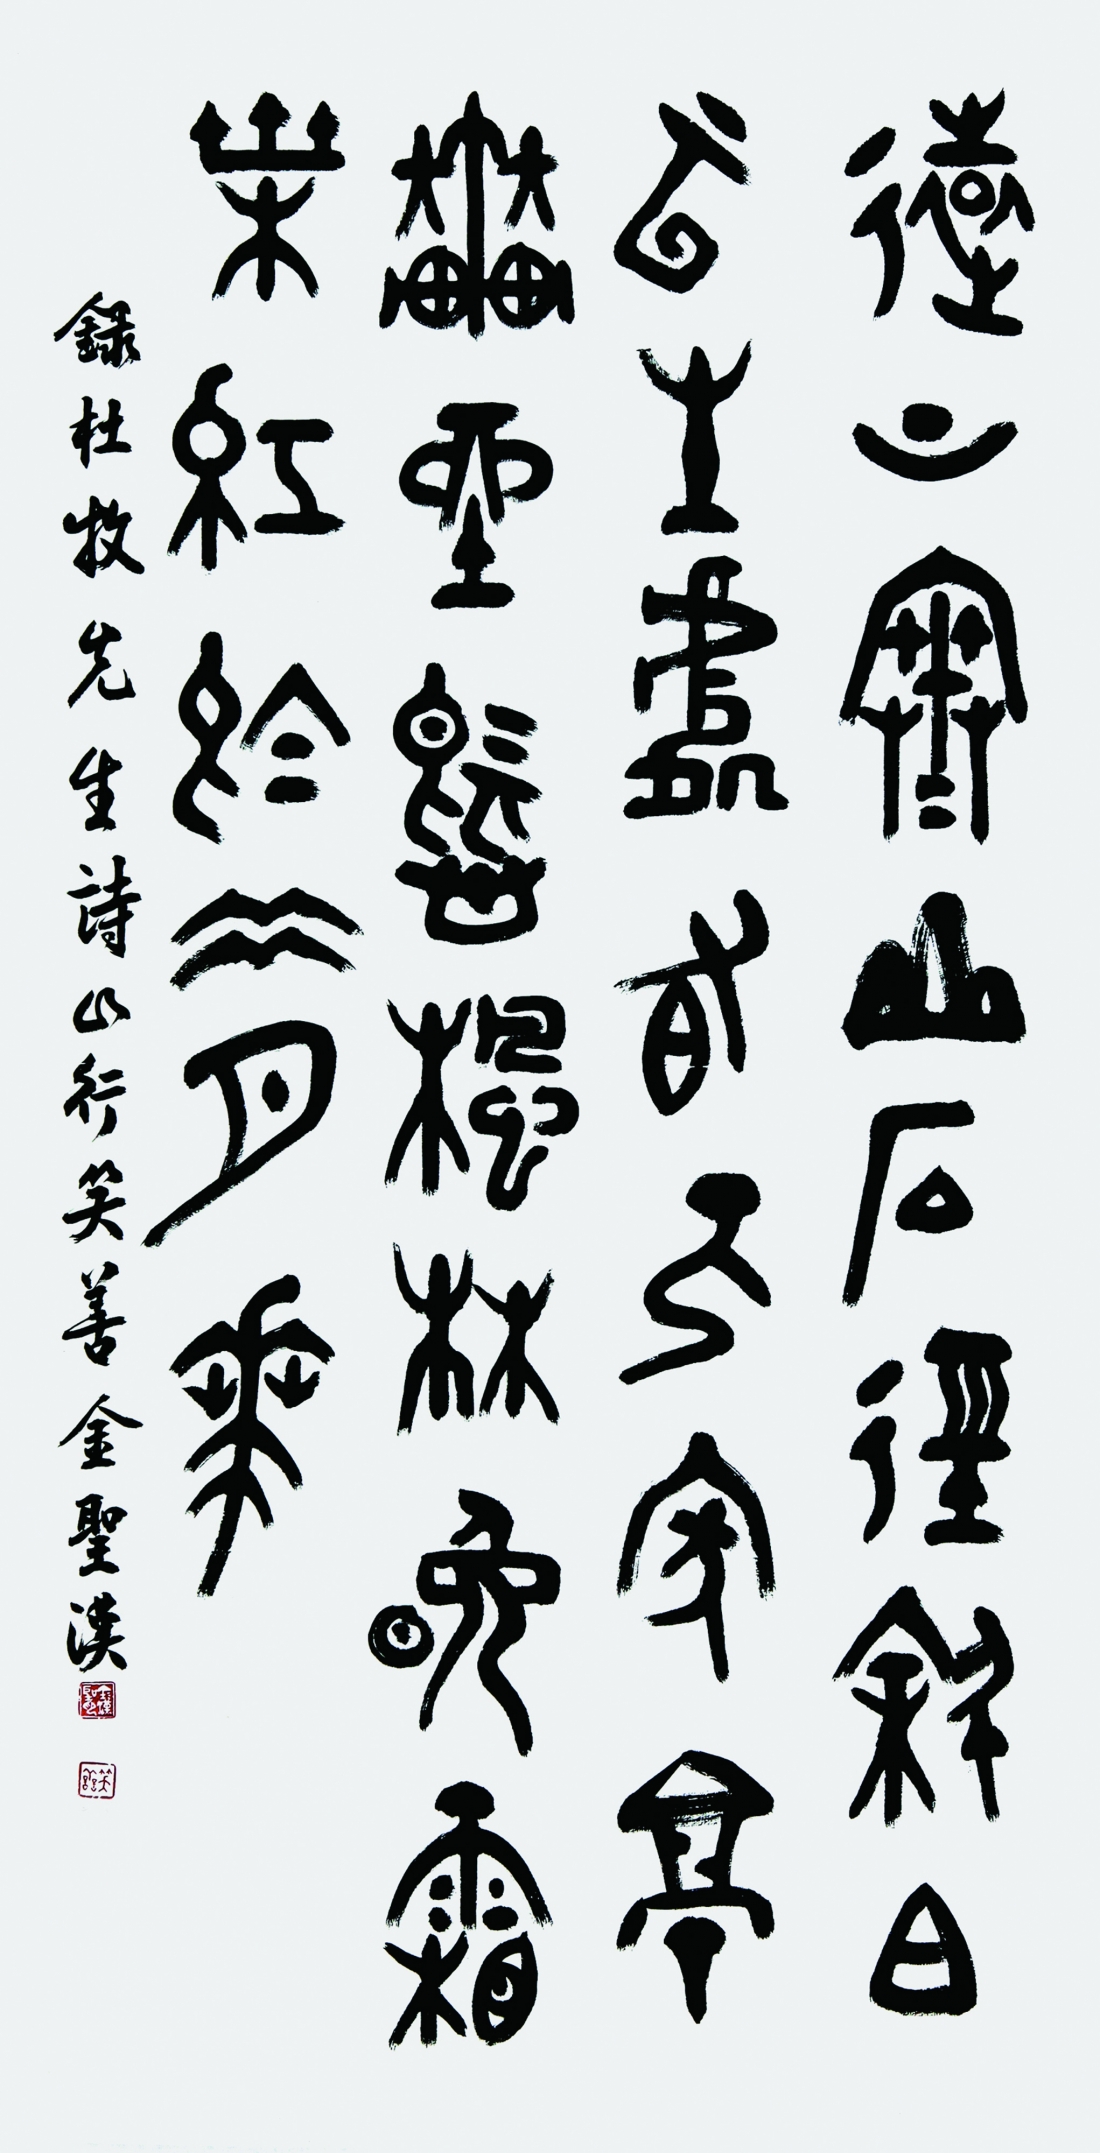 遠上寒山石徑斜白
云生處有人家亭
車坐愛楓林晚霜
葉紅於二月花
錄杜牧先生詩山行笑善金聖漢